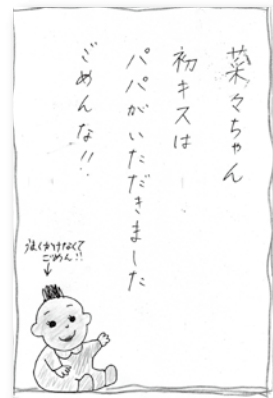 菜々ちゃん
初キスは
パパがいただきました
ごめんな!!
うまくかけなくて
ごめん!!